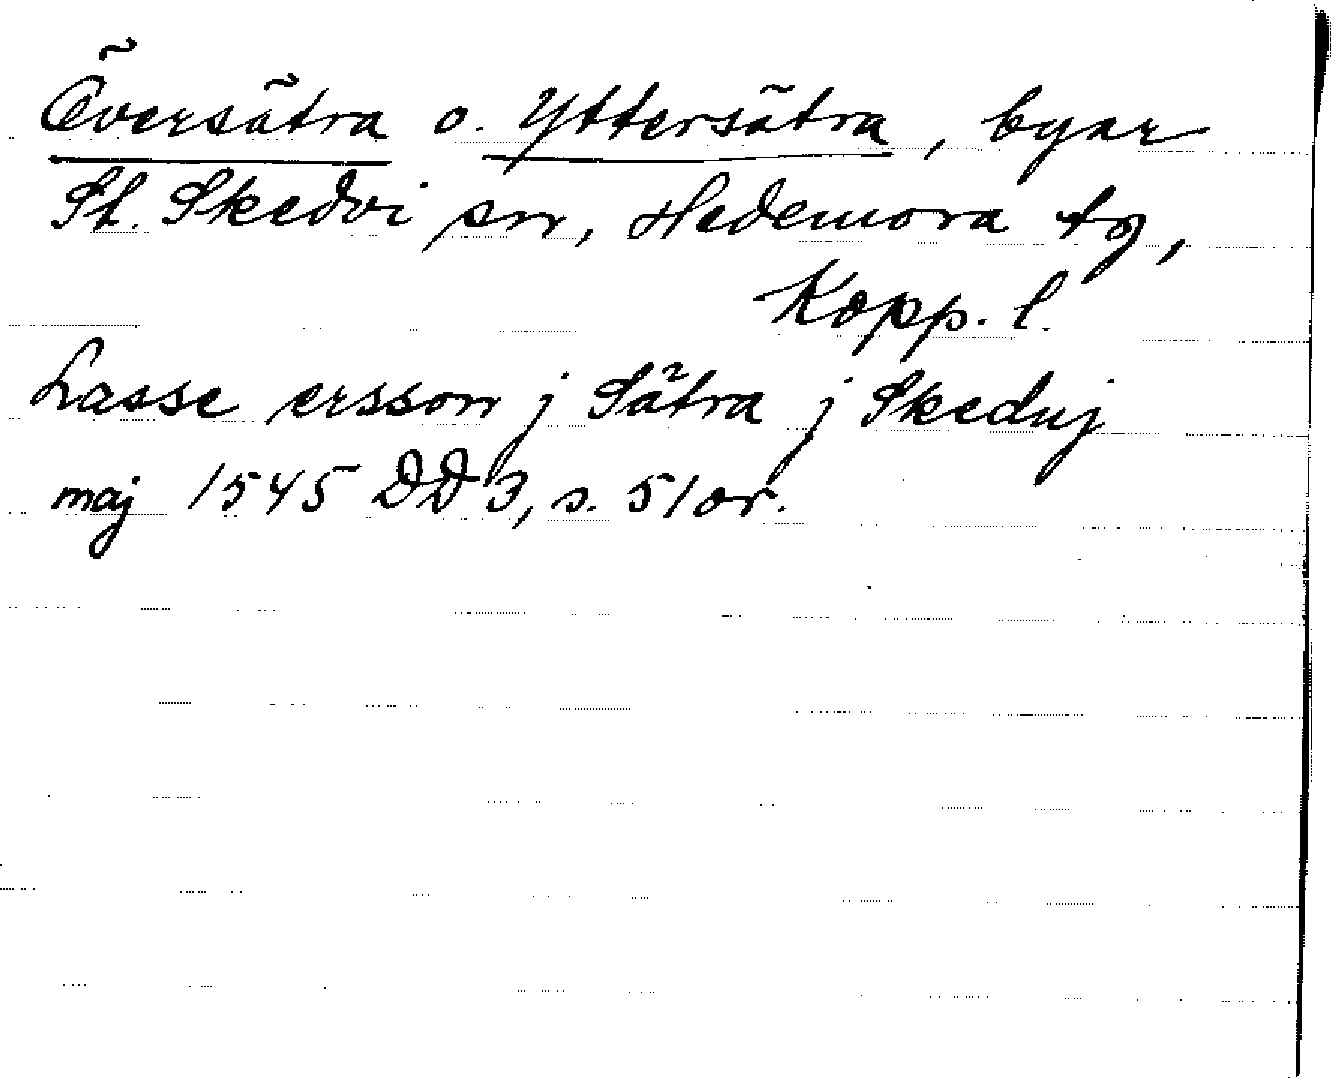 Översätra o. Yttersätra, byar
St. Skedvi sn, Hedemora tg,
Kopp. l.
Lasse ersson j Sätra j Skeduj
maj 1545 DD 3, s. 51 or.